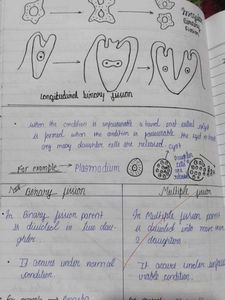 Irregular
Binary
fission
Longitudinal binary fission
• when the condition is unfavourable a hard coat called cyst
is formed when the condition is favourable the cyst is broken
any many daughter cells are released.
cyst
For example → Plasmodium
daughter
cells
are
released
Binary fusion
Multiple fusion
• In Binary fusion parent
is divided in two dau-
ghter.
• In Multiple fusion parent
is divided into more than
2 daughters.
• It occurs under normal
condition.
• It occurs under unfavo-
urable condition.